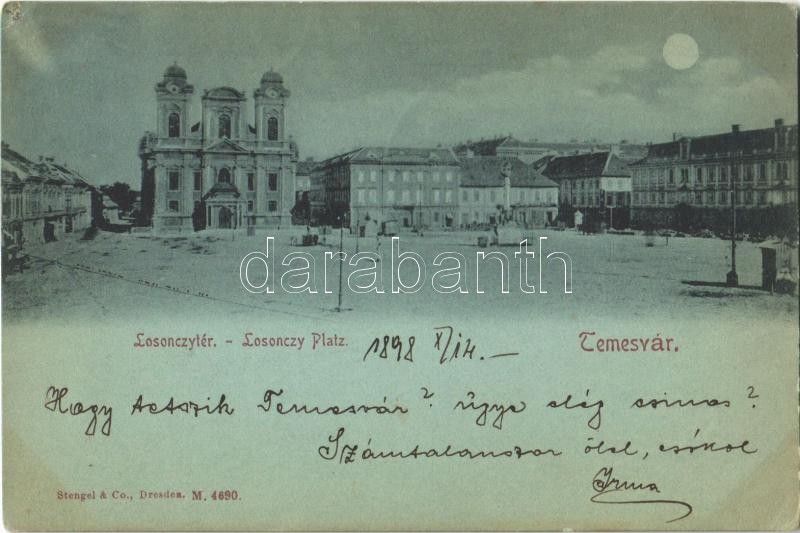 darabanth
Losonczytér. - Losonczy Platz. 1898 X/14. — Temesvár.
Hogy tetszik Temesvár? ugye elég csinos?
Számtalanszor ölel, csókol
Irma
Stengel & Co., Dresden. M. 4690.